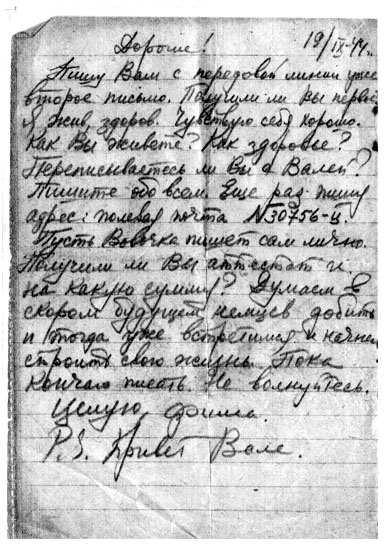 Дорогие! 19/IX-44.
Пишу Вам с передовой линии уже
второе письмо. Получили ли Вы первое
Я жив, здоров. Чувствую себя хорошо.
Как Вы живете? Как здоровье?
Переписываетесь ли Вы с Валей?
Пишите обо всем. Еще раз пишу
адрес: полевая почта №30756-ц.
Пусть Вовочка пишет сам лично.
Получили ли Вы аттестат и
на какую сумму? Думаем в
скором будущем немцев добить
и тогда уже встретимся и начнем
строить свою жизнь. Пока
кончаю писать. Не волнуйтесь.
Целую, Фима.
P.S. Привет Вале.